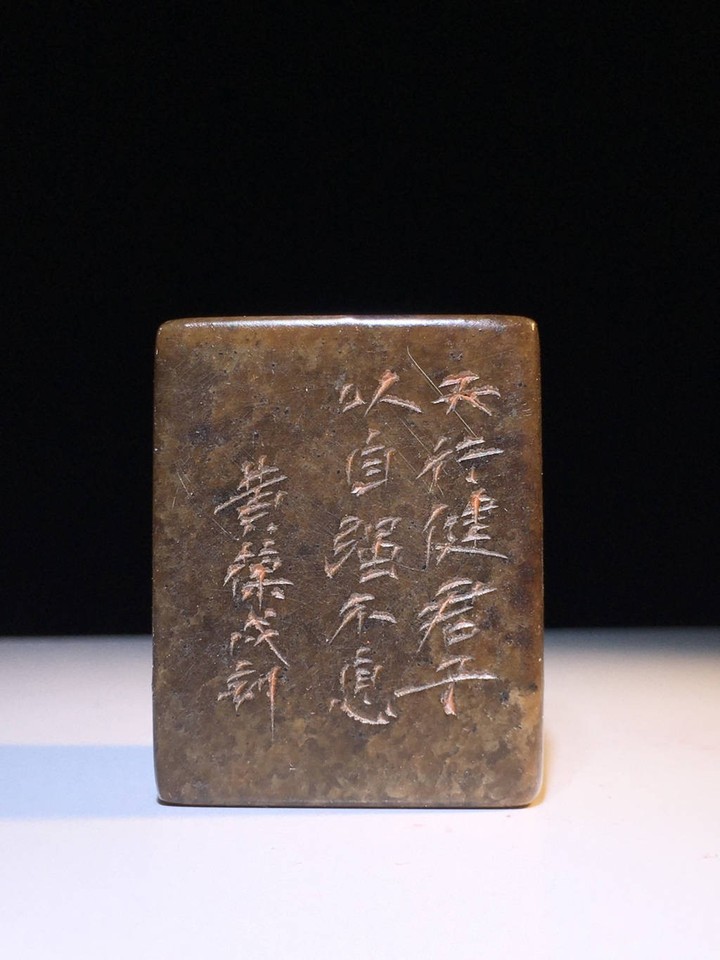 天行健君子
以自强不息
黄葆戉刻